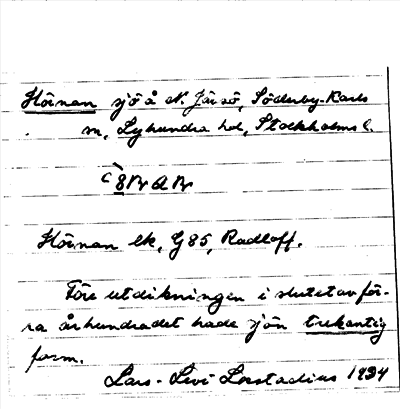 Hörnan sjö å N. Järsö, Söderby-Karls
m, Lyhundra hd, Stockholms l.
Hörnan ek, G 85, Radloff.
Före utdikningen i slutet av för-
ra århundradet hade sjön trekantig
form.
Lars-Levi Læstadius 1934